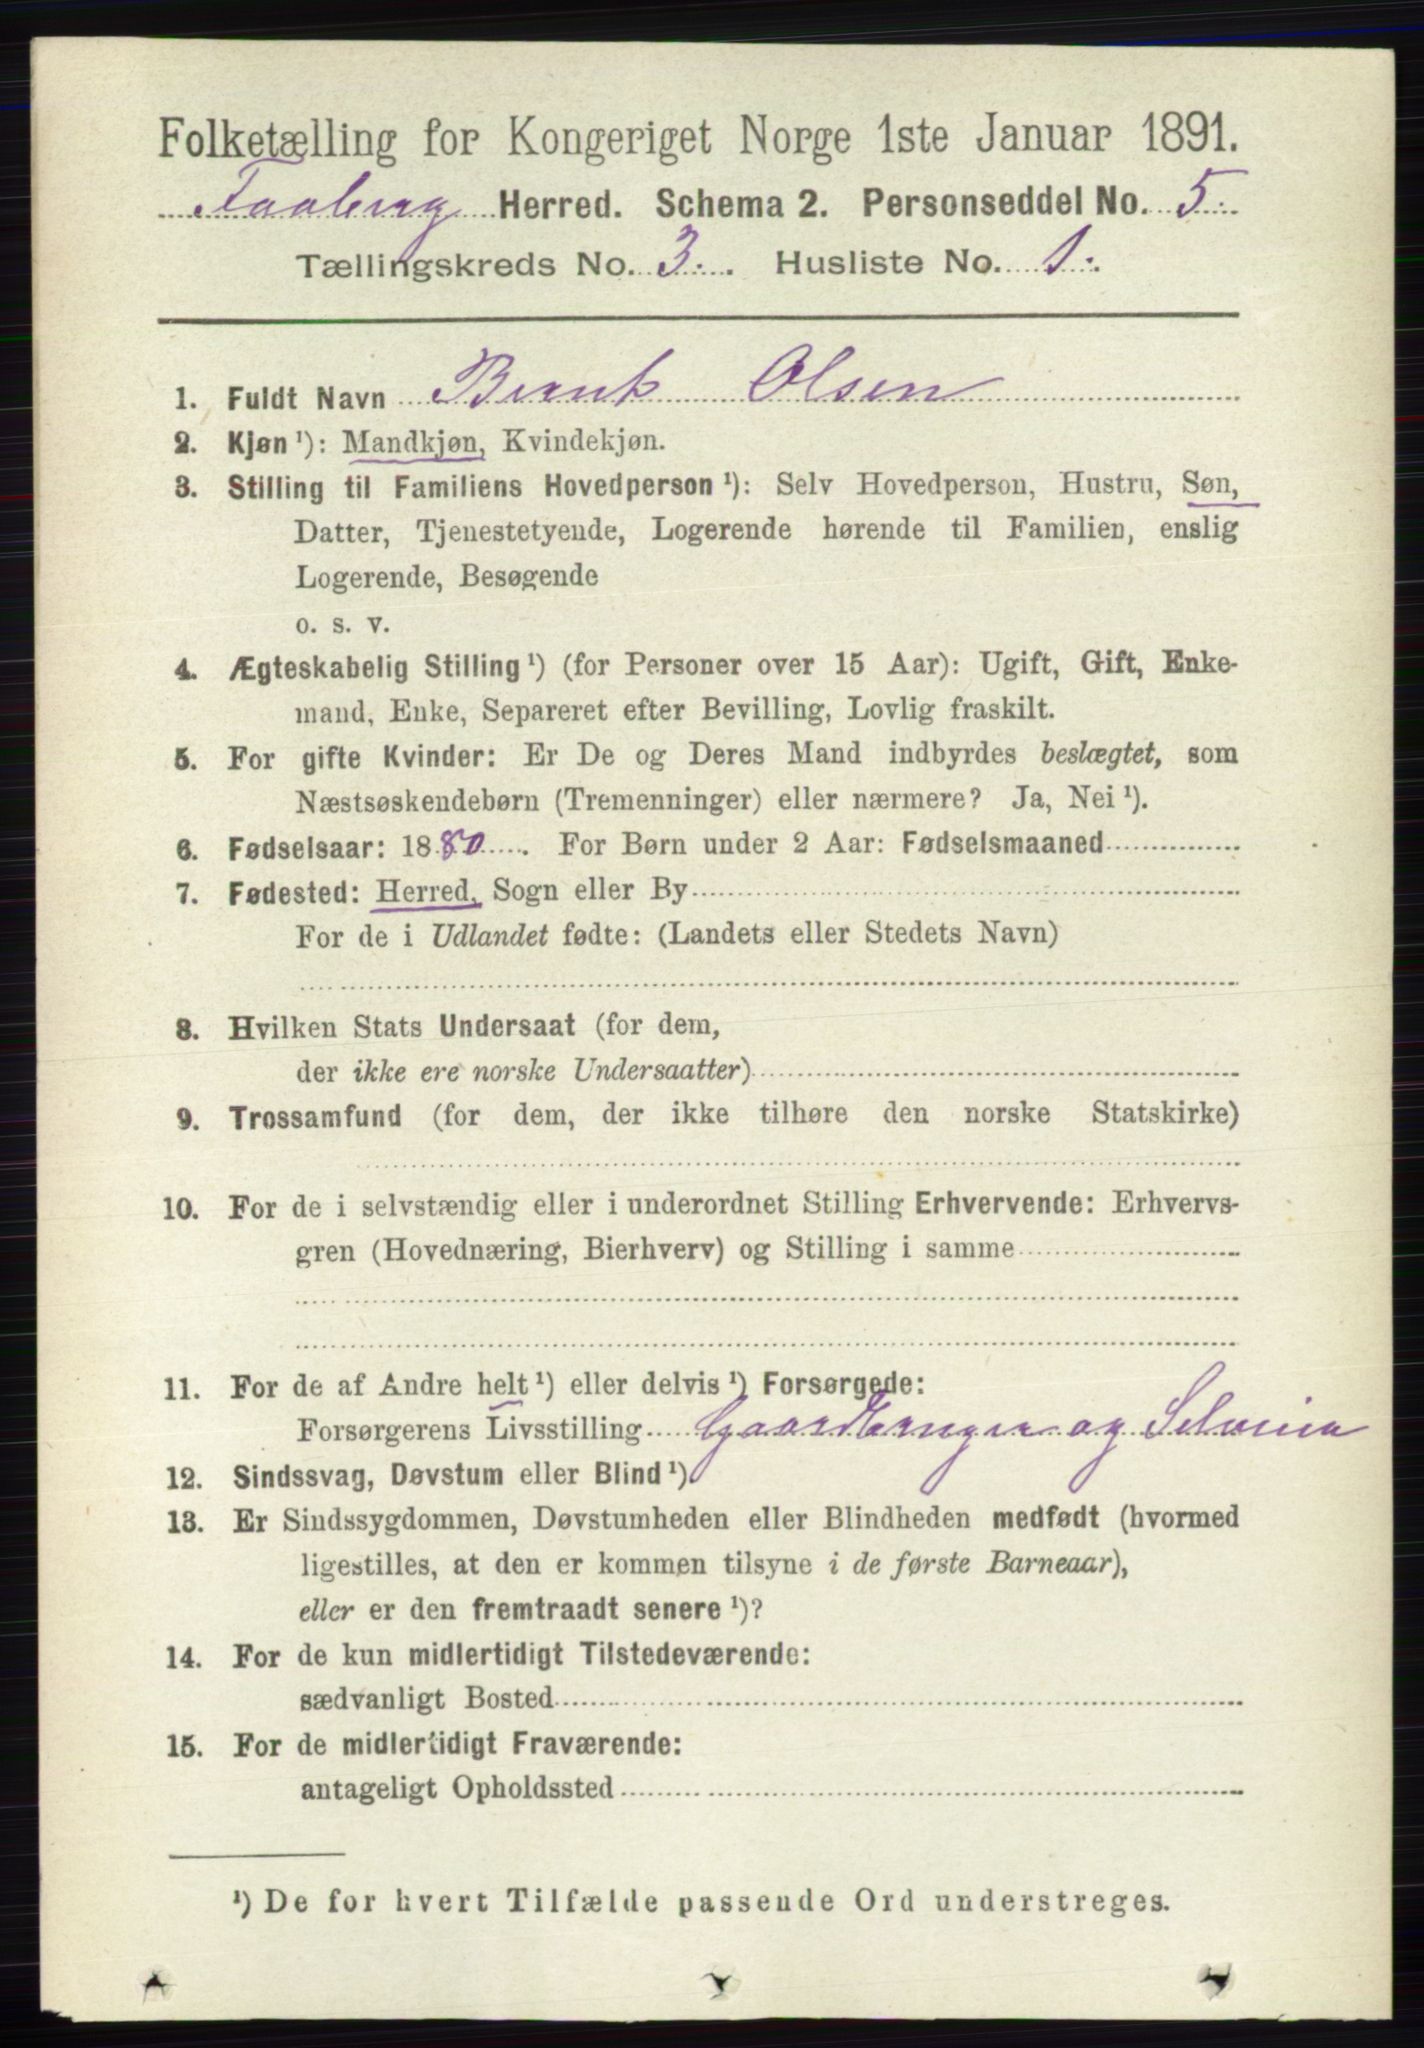 Folketælling for Kongeriget Norge 1ste Januar 1891.
Faaberg Herred. Schema 2. Personseddel No. 5.
Tællingskreds No. 3. Husliste No. 1.
1. Fuldt Navn Bernt Olsen
2. Kjøn ¹): Mandkjøn, Kvindekjøn.
3. Stilling til Familiens Hovedperson ¹): Selv Hovedperson, Hustru, Søn,
Datter, Tjenestetyende, Logerende hørende til Familien, enslig
Logerende, Besøgende
o. s. v.
4. Ægteskabelig Stilling ¹) (for Personer over 15 Aar): Ugift, Gift, Enke-
mand, Enke, Separeret efter Bevilling, Lovlig fraskilt.
5. For gifte Kvinder: Er De og Deres Mand indbyrdes beslægtet, som
Næstsøskendebørn (Tremenninger) eller nærmere? Ja, Nei ¹).
6. Fødselsaar: 1880. For Børn under 2 Aar: Fødselsmaaned
7. Fødested: Herred, Sogn eller By
For de i Udlandet fødte: (Landets eller Stedets Navn)
8. Hvilken Stats Undersaat (for dem,
der ikke ere norske Undersaatter)
9. Trossamfund (for dem, der ikke tilhøre den norske Statskirke)
10. For de i selvstændig eller i underordnet Stilling Erhvervende: Erhvervs-
gren (Hovednæring, Bierhverv) og Stilling i samme
11. For de af Andre helt ¹) eller delvis ¹) Forsørgede:
Forsørgerens Livsstilling Gaardbruger og Selveier
12. Sindssvag, Døvstum eller Blind ¹).
13. Er Sindssygdommen, Døvstumheden eller Blindheden medfødt (hvormed
ligestilles, at den er kommen tilsyne i de første Barneaar),
eller er den fremtraadt senere ¹)?
14. For de kun midlertidigt Tilstedeværende:
sædvanligt Bosted
15. For de midlertidigt Fraværende:
antageligt Opholdssted
¹) De for hvert Tilfælde passende Ord understreges.